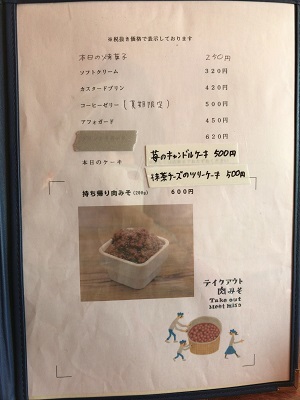 ※税抜き価格で表示しております
本日の焼菓子 250円
ソフトクリーム 320円
カスタードプリン 420円
コーヒーゼリー (夏期限定) 500円
アフォガード 450円
620円
本日のケーキ
苺のキャンドルケーキ 500円
抹茶チーズのツリーケーキ 500円
持ち帰り肉みそ(200g) 600円
テイクアウト
肉みそ
Take out
Meet Miso